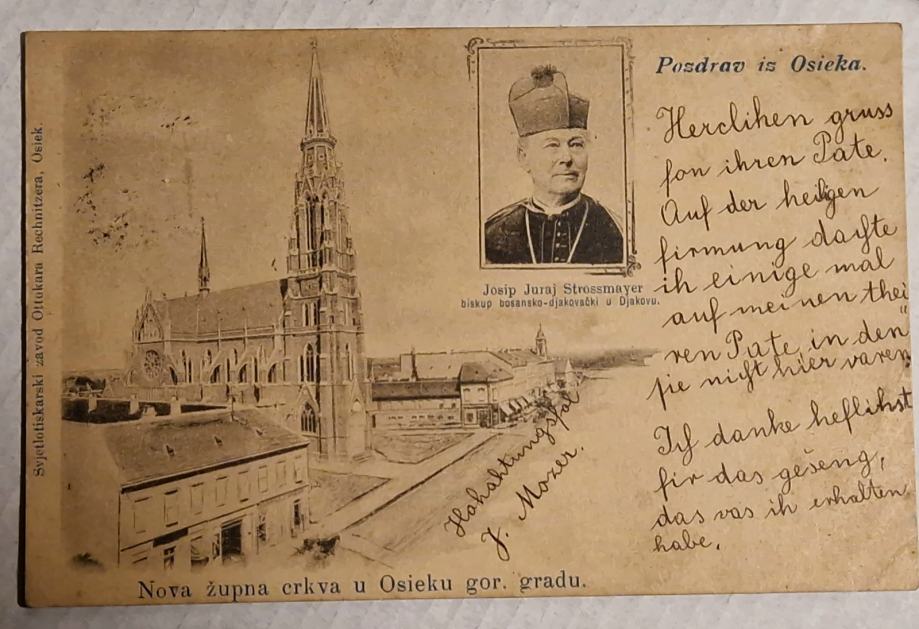 Pozdrav iz Osieka.
Herclihen gruss
fon ihren Pate.
Auf der heiligen
firmung dachte
ih einige mal
auf meinen thei
ren Pate, in den
sie nicht hier varen.
Ich danke heflihst
fir das gešeng,
das vas ih erhalten
habe.
Hohahtungsfol
J. Mozer.
Josip Juraj Strossmayer
biskup bosansko-djakovački u Djakovu.
Svjetlotiskarski zavod Ottokara Rechnitzera, Osiek.
Nova župna crkva u Osieku gor. gradu.